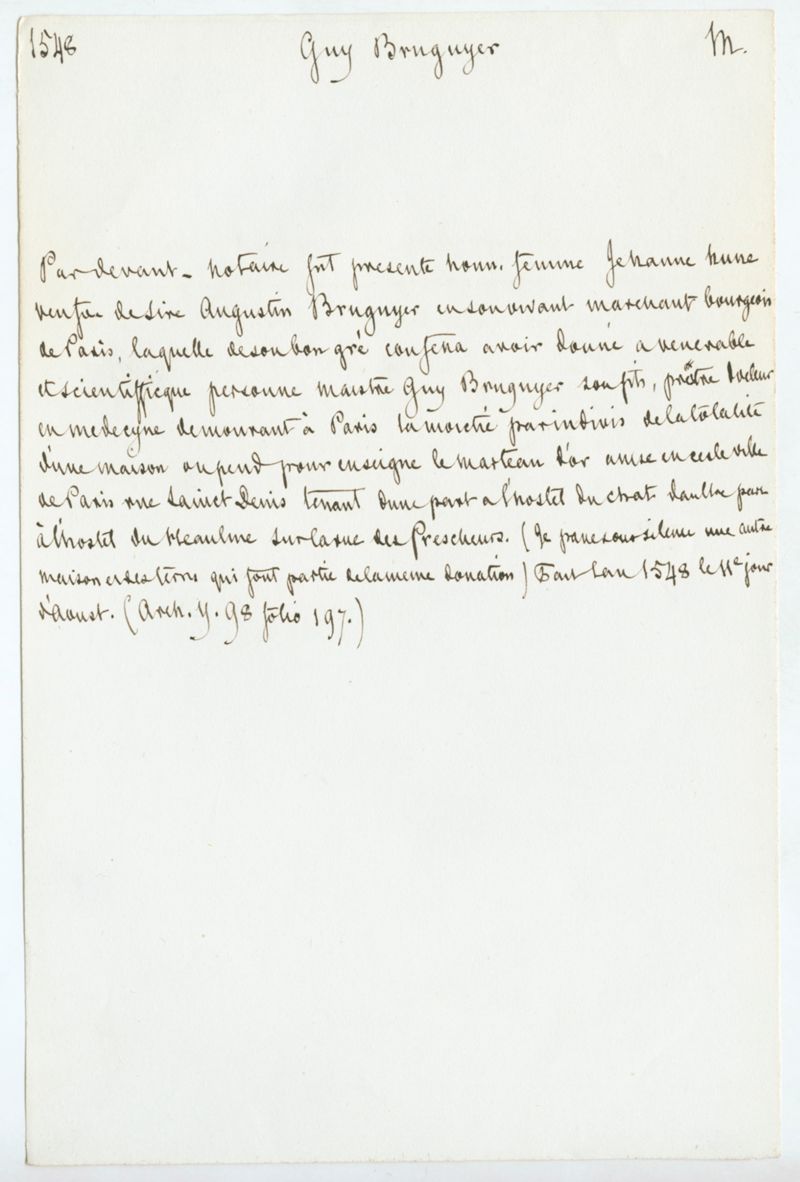 1548 Guy Bruguyer M.
Par devant - notaire fut presente honn. femme Jehanne hune
venfve de Sire Augustin Bruguyer en son vivant marchant bourgeois
de Paris, laquelle de son bon gré confessa avoir donné a venerable
et scientifficque personne maistre Guy Bruguyer son fils, prêtre docteur
en medecyne demourant à Paris la moictié par indivis de la totalité
d'une maison ou pend pour enseigne le marteau d'or assise en ceste ville
de Paris rue Sainct Denis tenant dune part a l'hostel du chat daultre part
à l'hostel du Heaulme sur la rue des Prescheurs. (Je passe sous silence une autre
maison et des terres qui font partie de la meme donation) Fait lan 1548 le 11e jour
d'Aoust. (Arch. Y. 98 folio 197.)